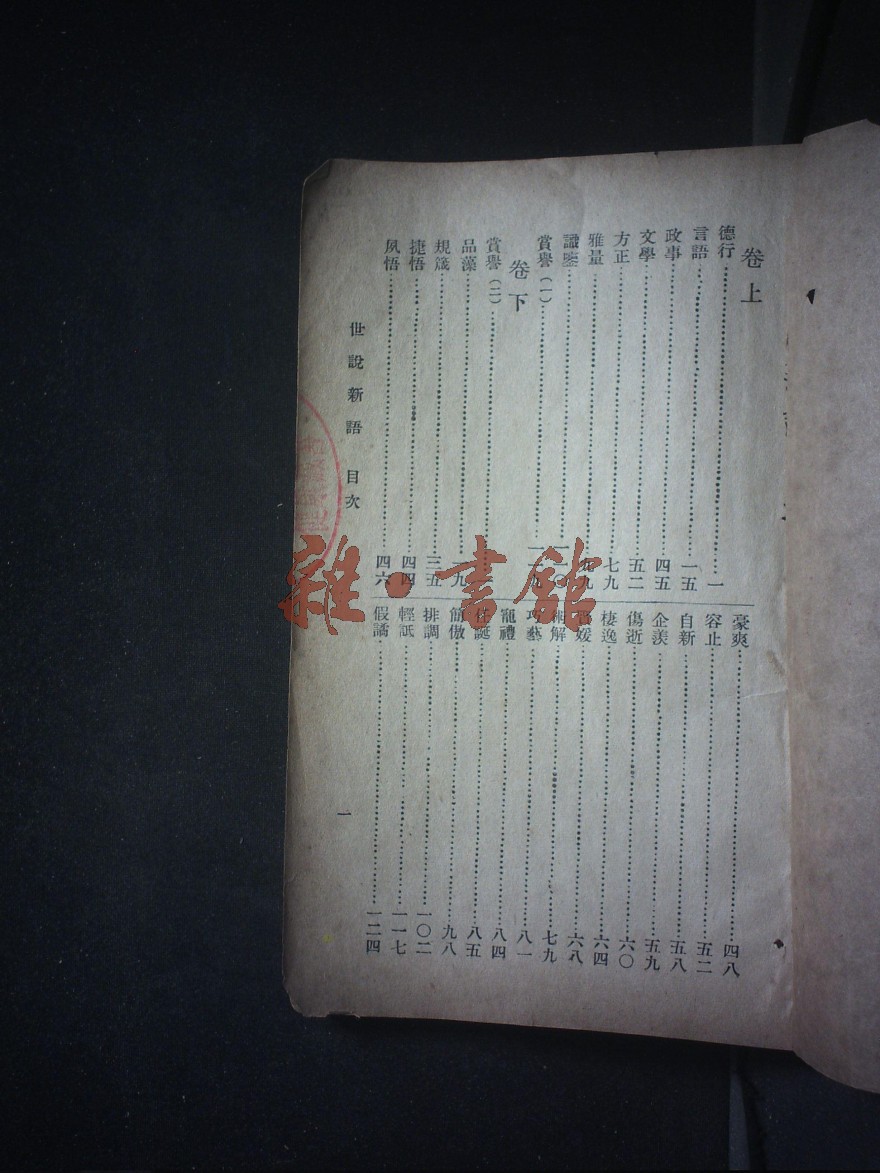 卷上
德行⋯⋯一
言語⋯⋯一五
政事⋯⋯四五
文學⋯⋯五二
方正⋯⋯七九
雅量⋯⋯九九
識鑒⋯⋯
賞譽(一)⋯⋯
卷下
賞譽(二)⋯⋯
品藻⋯⋯九
規箴⋯⋯三五
捷悟⋯⋯四四
夙悟⋯⋯四六
豪爽⋯⋯四八
容止⋯⋯五二
自新⋯⋯五八
企羨⋯⋯五九
傷逝⋯⋯六〇
棲逸⋯⋯六四
媛⋯⋯六八
解⋯⋯七九
巧藝⋯⋯八一
寵禮⋯⋯八四
任誕⋯⋯八五
簡傲⋯⋯九八
排調⋯⋯一〇二
輕詆⋯⋯一一七
假譎⋯⋯一二四
世說新語 目次
一
雜·書館